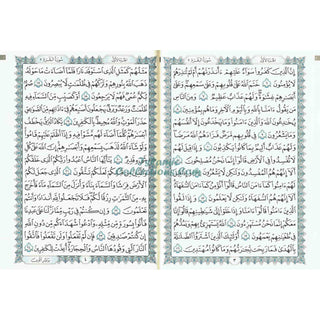 إن الذين كفروا سواء عليهم ءأنذرتهم أم لم تنذرهم
لا يؤمنون ختم الله على قلوبهم وعلى سمعهم وعلى
أبصرهم غشوة ولهم عذاب عظيم ومن الناس من
يقول ءامنا بالله وباليوم الأخر وما هم بمؤمنين
يخدعون الله والذين ءامنوا وما يخدعون إلا أنفسهم
وما يشعرون في قلوبهم مرض فزادهم الله مرضا
ولهم عذاب أليم بما كانوا يكذبون وإذا قيل لهم
لا تفسدوا في الأرض قالوا إنما نحن مصلحون
ألا إنهم هم المفسدون ولكن لا يشعرون وإذا قيل
لهم ءامنوا كما ءامن الناس قالوا أنؤمن كما ءامن السفهاء
ألا إنهم هم السفهاء ولكن لا يعلمون وإذا لقوا الذين
ءامنوا قالوا ءامنا وإذا خلوا إلى شيطينهم قالوا إنا معكم
إنما نحن مستهزءون الله يستهزئ بهم ويمدهم في
طغينهم يعمهون أولئك الذين اشتروا الضللة
بالهدى فما ربحت تجرتهم وما كانوا مهتدين
٣
مثلهم كمثل الذي استوقد نارا فلما أضاءت ما حوله
ذهب الله بنورهم وتركهم في ظلمت لا يبصرون صم
بكم عمي فهم لا يرجعون أو كصيب من السماء فيه
ظلمت ورعد وبرق يجعلون أصبعهم في ءاذانهم من الصوعق
حذر الموت والله محيط بالكفرين يكاد البرق يخطف
أبصرهم كلما أضاء لهم مشوا فيه وإذا أظلم عليهم قاموا
ولو شاء الله لذهب بسمعهم وأبصرهم إن الله على كل
شيء قدير يأيها الناس اعبدوا ربكم الذي خلقكم
والذين من قبلكم لعلكم تتقون الذي جعل لكم
الأرض فرشا والسماء بناء وأنزل من السماء ماء فأخرج
به من الثمرت رزقا لكم فلا تجعلوا لله أندادا وأنتم
تعلمون وإن كنتم في ريب مما نزلنا على عبدنا
فأتوا بسورة من مثله وادعوا شهداءكم من دون الله
إن كنتم صدقين فإن لم تفعلوا ولن تفعلوا فاتقوا
النار التي وقودها الناس والحجارة أعدت للكفرين
٤